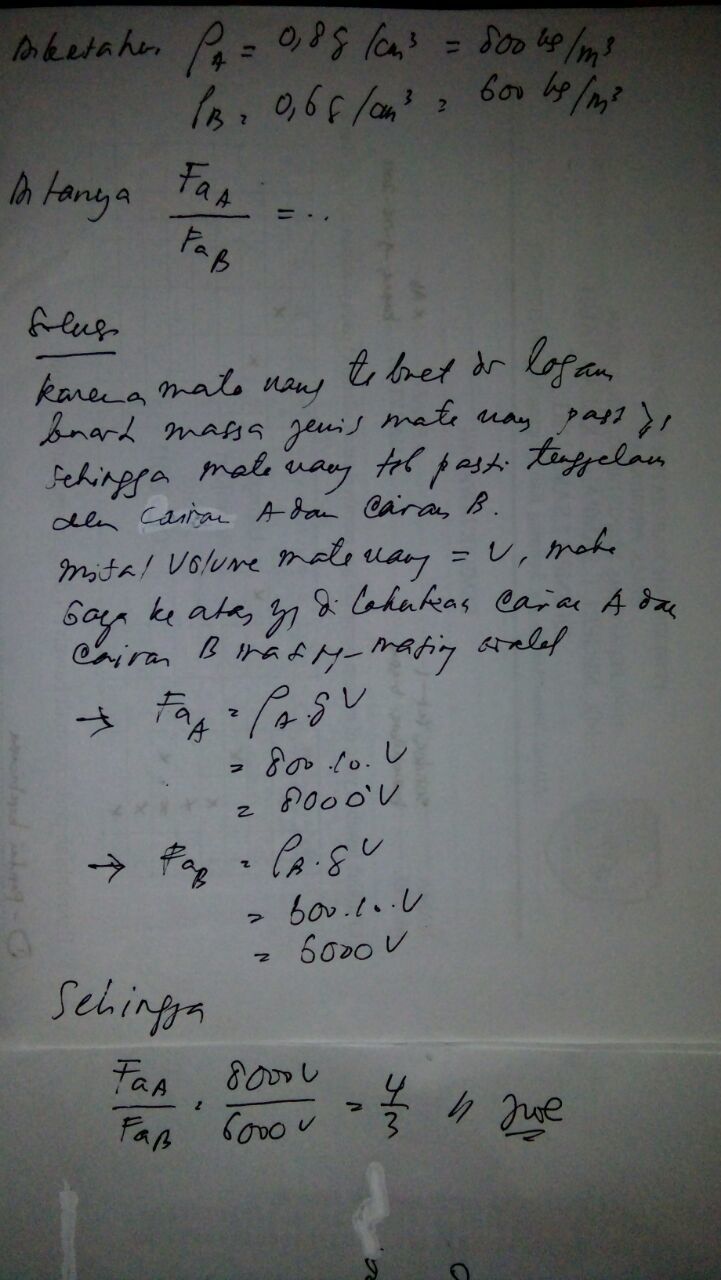 Diketahui ρA = 0,8 g/cm³ = 800 kg/m³
ρB = 0,6 g/cm³ = 600 kg/m³
Ditanya FaA / FaB = ..
Solusi
karena mata uang tbuat dr logam
berarti massa jenis mata uang pasti >,
sehingga mata uang tsb pasti tenggelam
dlm cairan A dan cairan B.
misal volume mata uang = V, maka
Gaya ke atas yg dilakukan cairan A dan
cairan B masing-masing adalah
→ FaA = ρA.g V
= 800.10.V
= 8000 V
→ FaB = ρB.g V
= 600.10.V
= 6000 V
Sehingga
FaA / FaB = 8000V / 6000V = 4/3 //